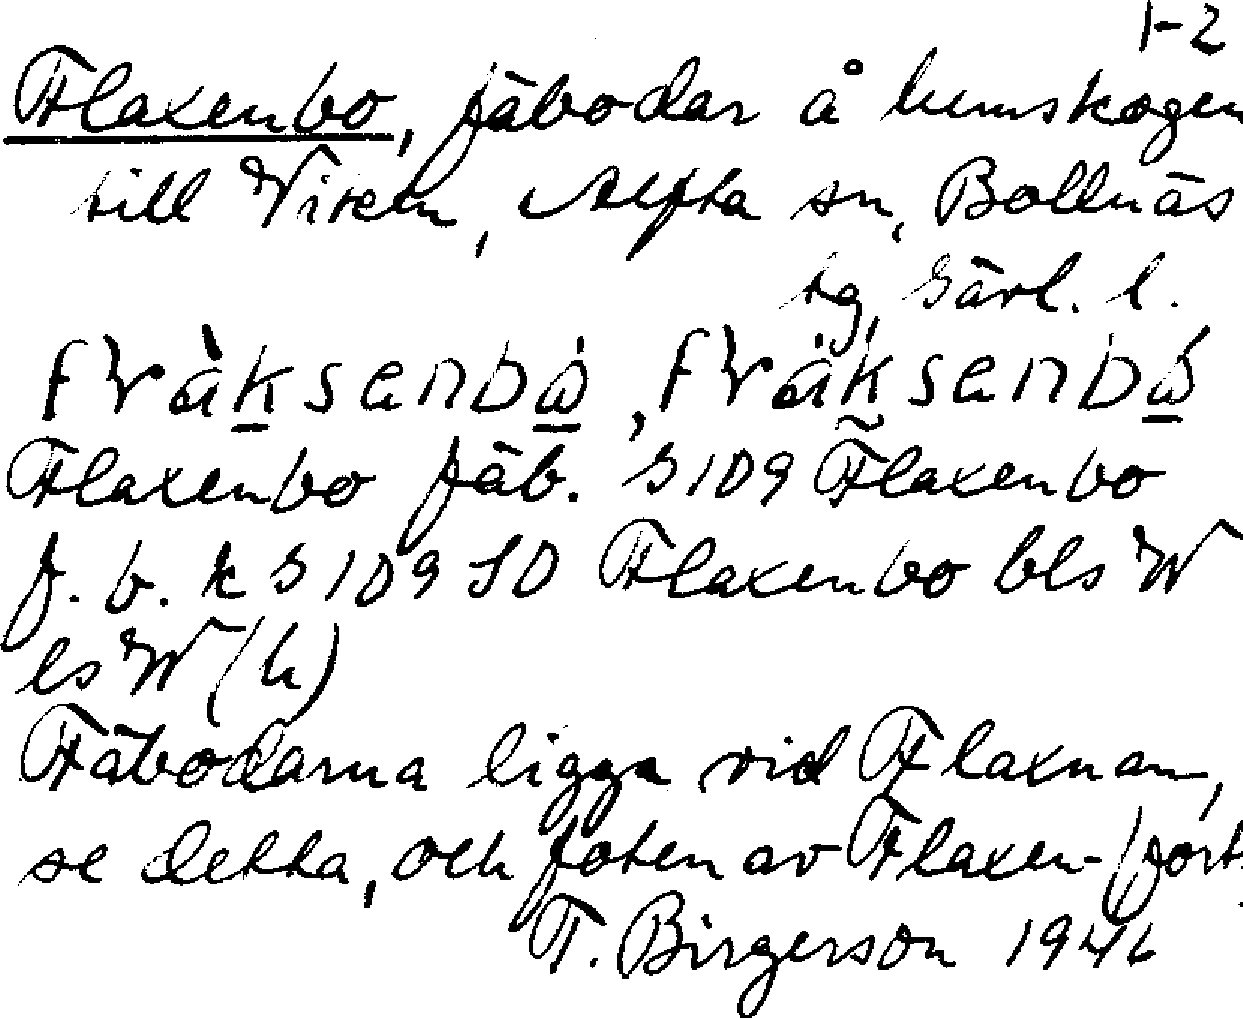 1-2
Flaxenbo, fäbodar å hemskogen
till Viken, Alfta sn, Bollnäs
tg, Gävl. l.
fräksenbò, fräksenbó
Flaxenbo fäb. G109 Flaxenbo
f. b. k G109 SO Flaxenbo bls W
ls W (h)
Fäbodarna ligga vid Flaxnan,
se detta, och foten av Flaxen- (forts.
T. Birgerson 1946